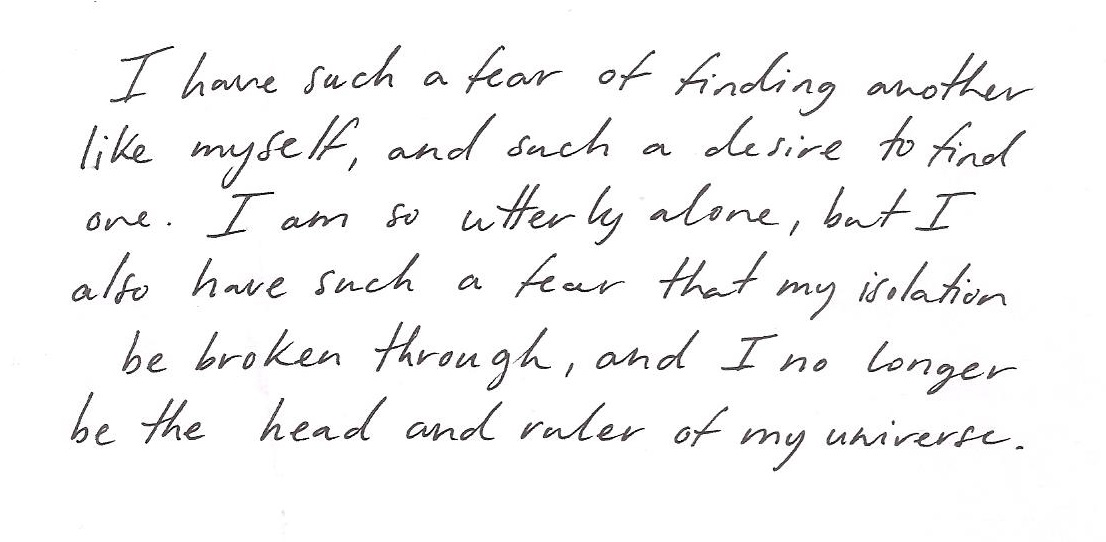 I have such a fear of finding another
like myself, and such a desire to find
one. I am so utterly alone, but I
also have such a fear that my isolation
be broken through, and I no longer
be the head and ruler of my universe.